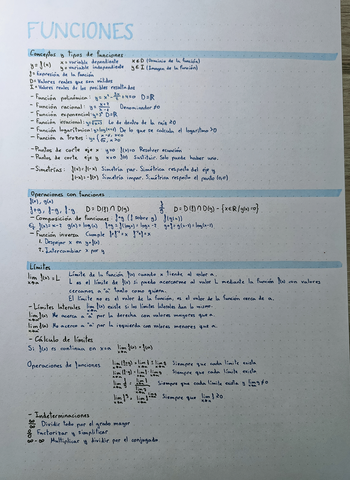 FUNCIONES
Conceptos y tipos de funciones
y = f(x) x = variable dependiente x∈D (Dominio de la función)
y = variable independiente y∈I (Imagen de la función)
f = Expresión de la función
D = Valores reales que son válidos
I = Valores reales de los posibles resultados
- Función polinómica: D=ℝ
- Función racional: Denominador ≠0
- Función exponencial: D=ℝ
- Función irracional: Lo de dentro de la raíz ≥0
- Función logarítmica: De lo que se calcula el logaritmo >0
- Función a trozos:
- Puntos de corte eje x y=0 f(x)=0 Resolver ecuación
- Puntos de corte eje y x=0 f(0) Sustituir. Solo puede haber uno.
- Simetrías: f(x)=f(-x) Simetría par. Simétrica respecto del eje y
f(-x)=-f(x) Simetría impar. Simétrica respecto el punto (0,0)
Operaciones con funciones
f(x), g(x)
f+g, f-g, f·g D = D(f) ∩ D(g) f/g D = D(f) ∩ D(g) - {x∈ℝ/g(x)=0}
- Composición de funciones f∘g (f sobre g) f(g(x))
- Función inversa Cumple
1. Despejar x en y=f(x)
2. Intercambiar x por y
Límites
lim f(x) = L Límite de la función f(x) cuando x tiende al valor a.
x→a L es el límite de f(x) si puedo acercarme al valor L mediante la función f(x) con valores
cercanos a "a" tanto como quiera.
El límite no es el valor de la función, es el valor de la función cerca de a.
- Límites laterales lim f(x) existe si los límites laterales dan lo mismo.
lim f(x) Me acerco a "a" por la derecha con valores mayores que a.
lim f(x) Me acerco a "a" por la izquierda con valores menores que a.
- Cálculo de límites
Si f(x) es continua en x=a lim f(x) = f(a)
Operaciones de funciones lim (f+g) = lim f + lim g Siempre que cada límite exista
Siempre que cada límite exista
Siempre que cada límite exista y lim g≠0
Siempre que lim f ≥0
- Indeterminaciones
∞/∞ Dividir todo por el grado mayor
0/0 Factorizar y simplificar
∞-∞ Multiplicar y dividir por el conjugado